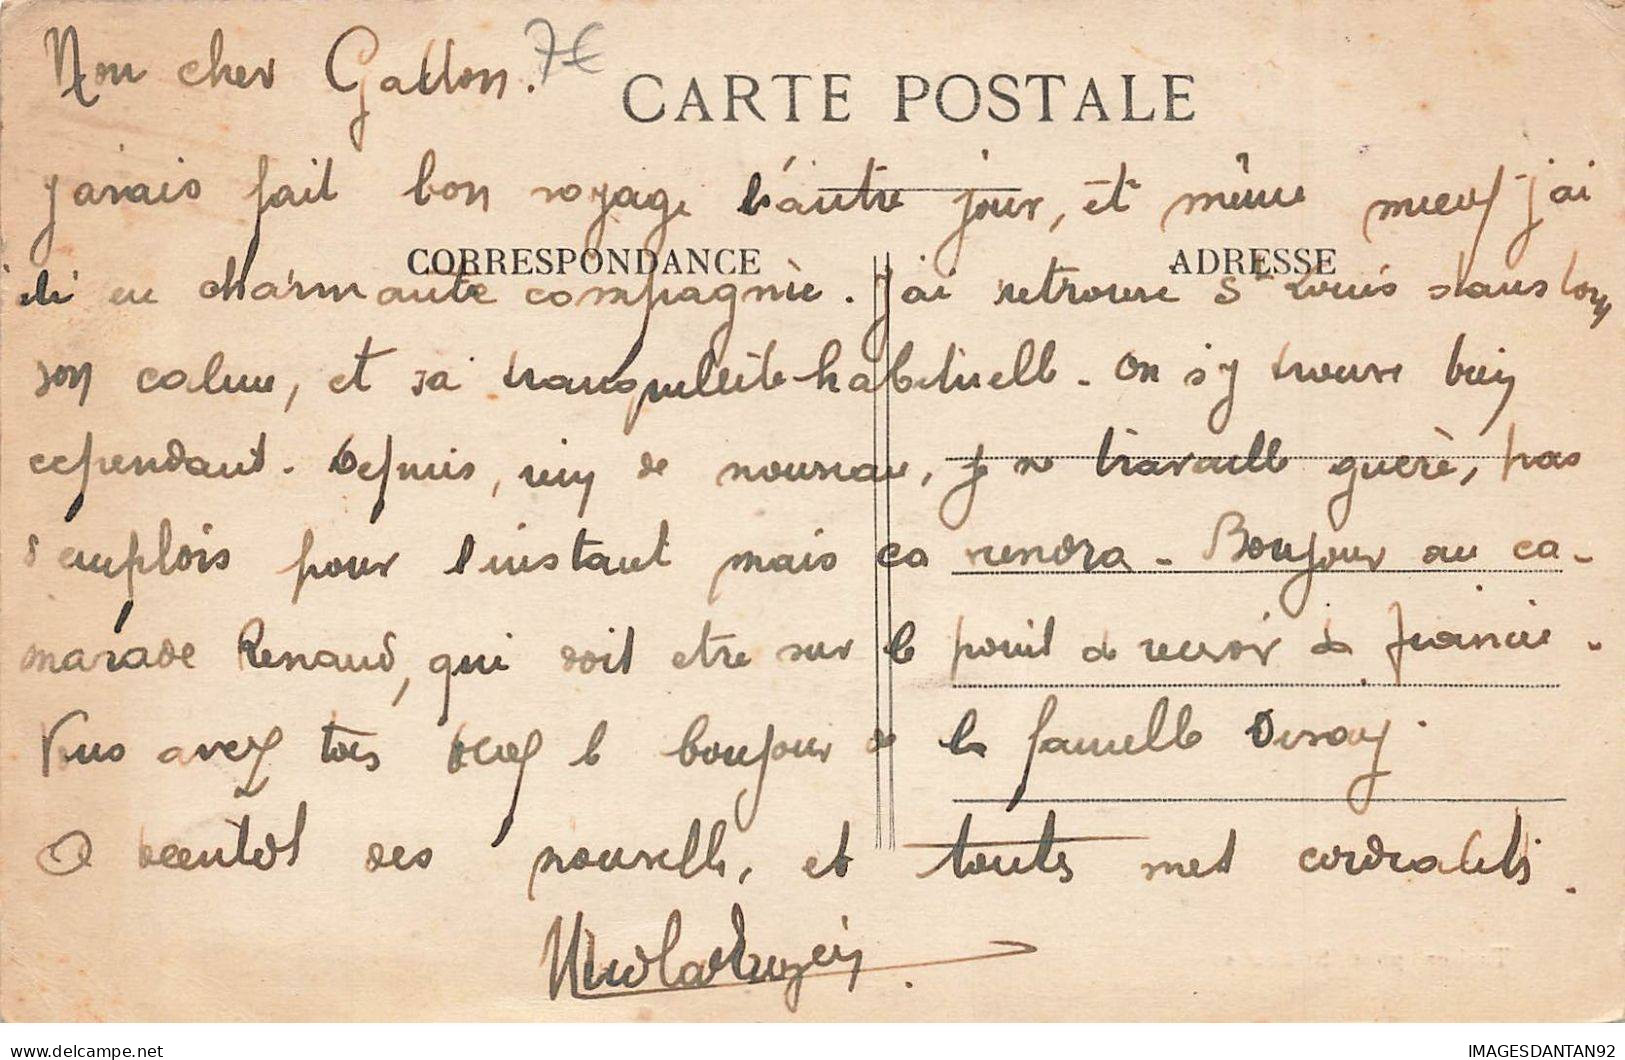 Mon cher Gallon. 7€
CARTE POSTALE
J'avais fait bon voyage l'autre jour, et même mieux j'ai
été en charmante compagnie. J'ai retrouvé St Louis dans tout
CORRESPONDANCE
ADRESSE
son calme, et sa tranquillité habituelle. On s'y trouve bien
cependant. Depuis, rien de nouveau, je ne travaille guère, pas
d'emplois pour l'instant mais ça viendra - Bonjour au ca-
marade Renaud, qui doit etre sur le point de revoir la France.
Vous avez tous deux le bonjour de la famille
A bientôt des nouvelle, et toute mes cordialités.